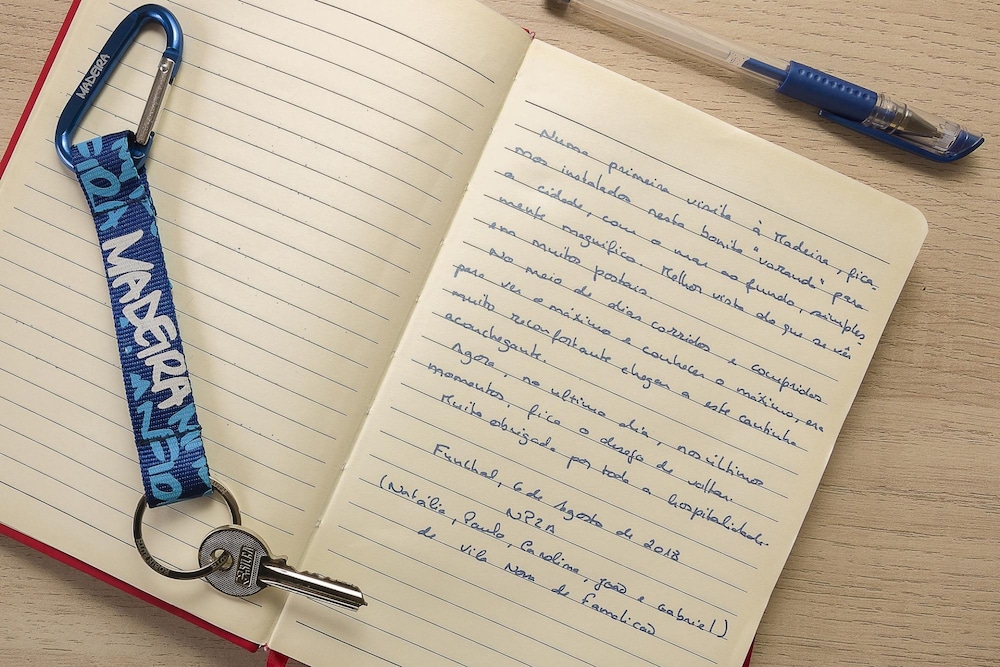 MADEIRA
MADEIRA
Numa primeira visita à Madeira, fica-
mos instalados nesta bonita "varanda" para
a cidade, com o mar ao fundo, simples
mente magnífica. Melhor vista do que se vê
em muitos postais.
No meio de dias corridos e compridos
para ver o máximo e conhecer o máximo, era
muito reconfortante chegar a este cantinho
aconchegante.
Agora, no último dia, nos últimos
momentos, fica o desejo de voltar.
Muito obrigada por toda a hospitalidade.
Funchal, 6 de Agosto de 2018
(Natália, Paulo, Carolina, João e Gabriel)
de Vila Nova de Famalicão